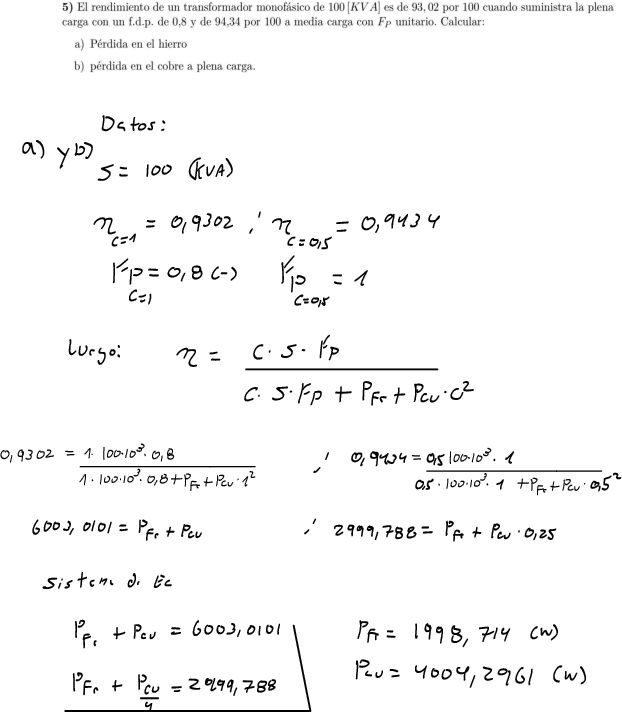 5) El rendimiento de un transformador monofásico de 100 [KVA] es de 93,02 por 100 cuando suministra la plena
carga con un f.d.p. de 0,8 y de 94,34 por 100 a media carga con F_P unitario. Calcular:
a) Pérdida en el hierro
b) pérdida en el cobre a plena carga.
Datos:
a) y b)
S = 100 (KVA)
η_{C=1} = 0,9302 ; η_{C=0,5} = 0,9434
Fp_{C=1} = 0,8 (-) Fp_{C=0,5} = 1
Luego: η = \frac{C · S · Fp}{C · S · Fp + P_{Fr} + P_{cu} · C^2}
0,9302 = \frac{1 · 100·10^3 · 0,8}{1 · 100·10^3 · 0,8 + P_{Fr} + P_{cu} · 1^2} ; 0,9434 = \frac{0,5 100·10^3 · 1}{0,5 · 100·10^3 · 1 + P_{Fr} + P_{cu} · 0,5^2}
6003,0101 = P_{Fr} + P_{cu} ; 2999,788 = P_{Fr} + P_{cu} · 0,25
Sistema de Ec
P_{Fr} + P_{cu} = 6003,0101 P_{Fr} = 1998,714 (W)
P_{Fr} + \frac{P_{cu}}{4} = 2999,788 P_{cu} = 4004,2961 (W)